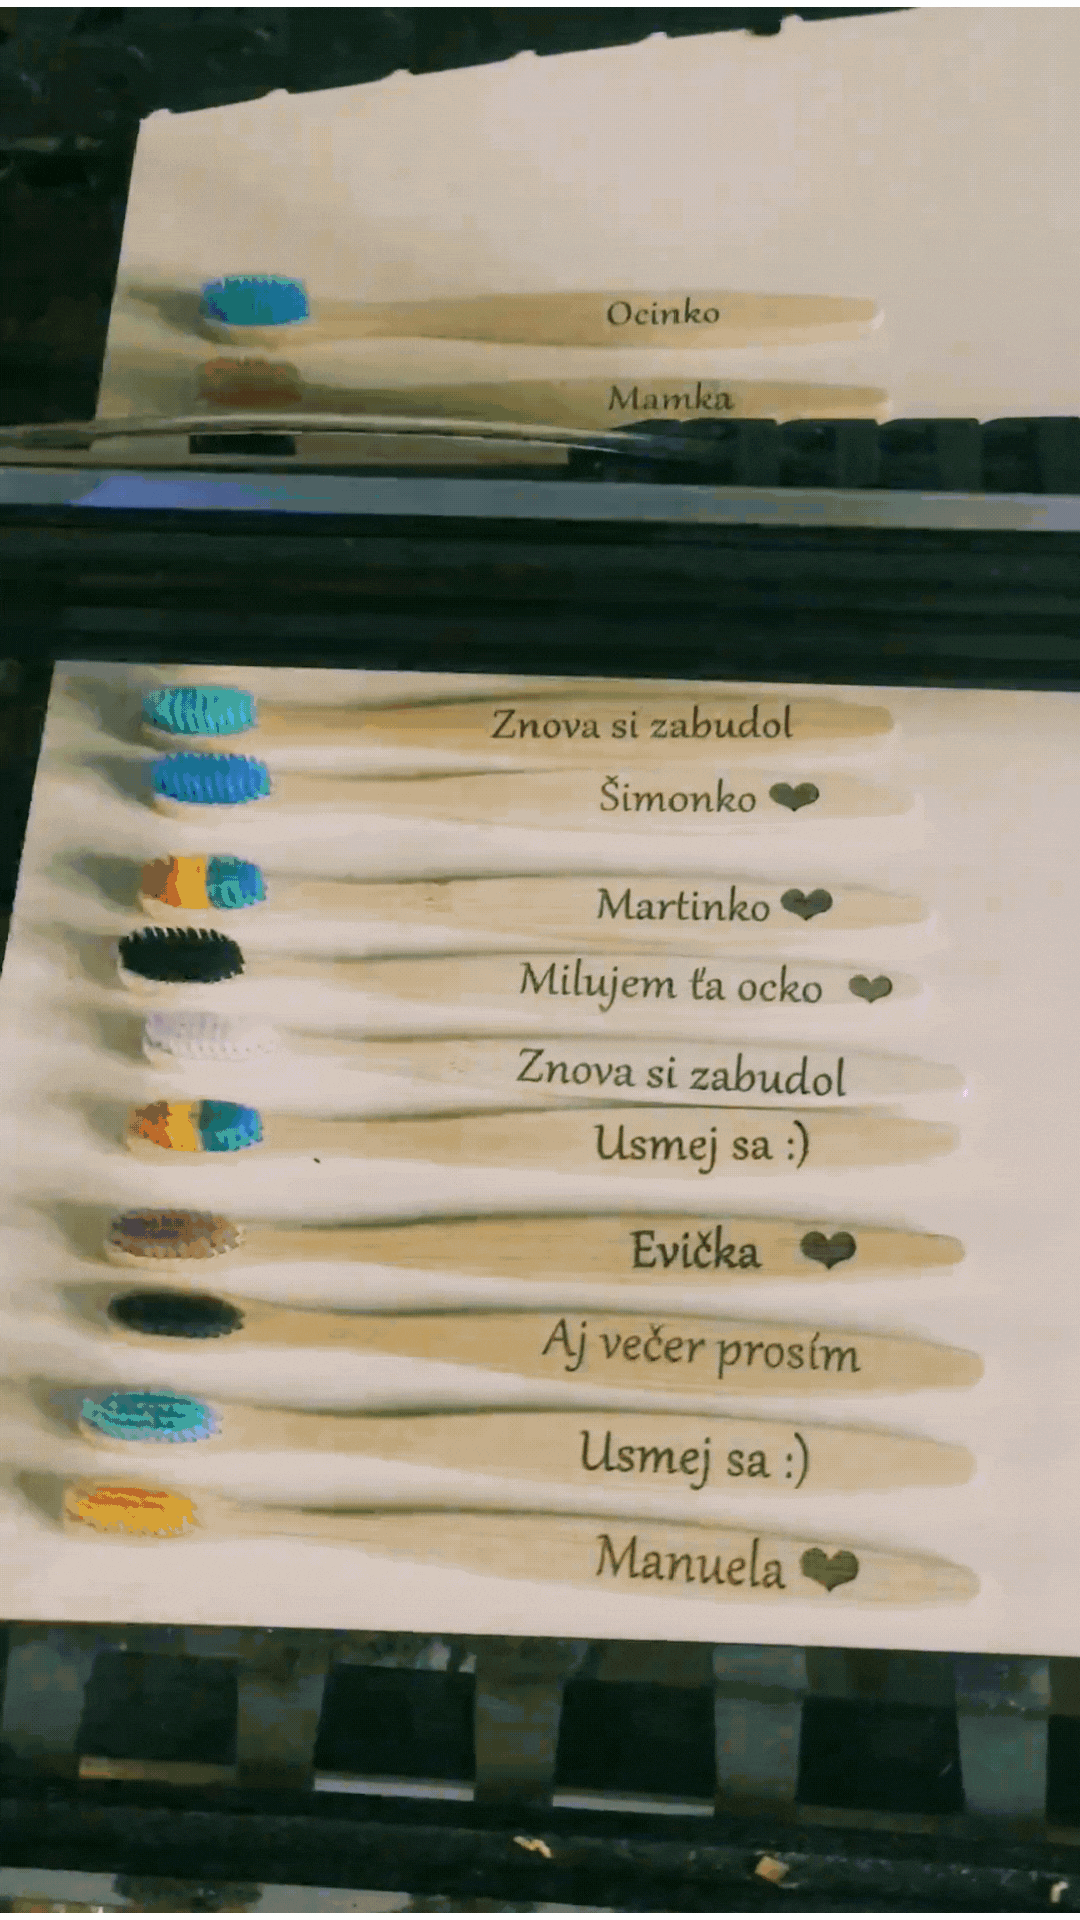 Ocinko
Mamka
Znova si zabudol
Šimonko ❤
Martinko ❤
Milujem ťa ocko ❤
Znova si zabudol
Usmej sa :)
Evička ❤
Aj večer prosím
Usmej sa :)
Manuela ❤